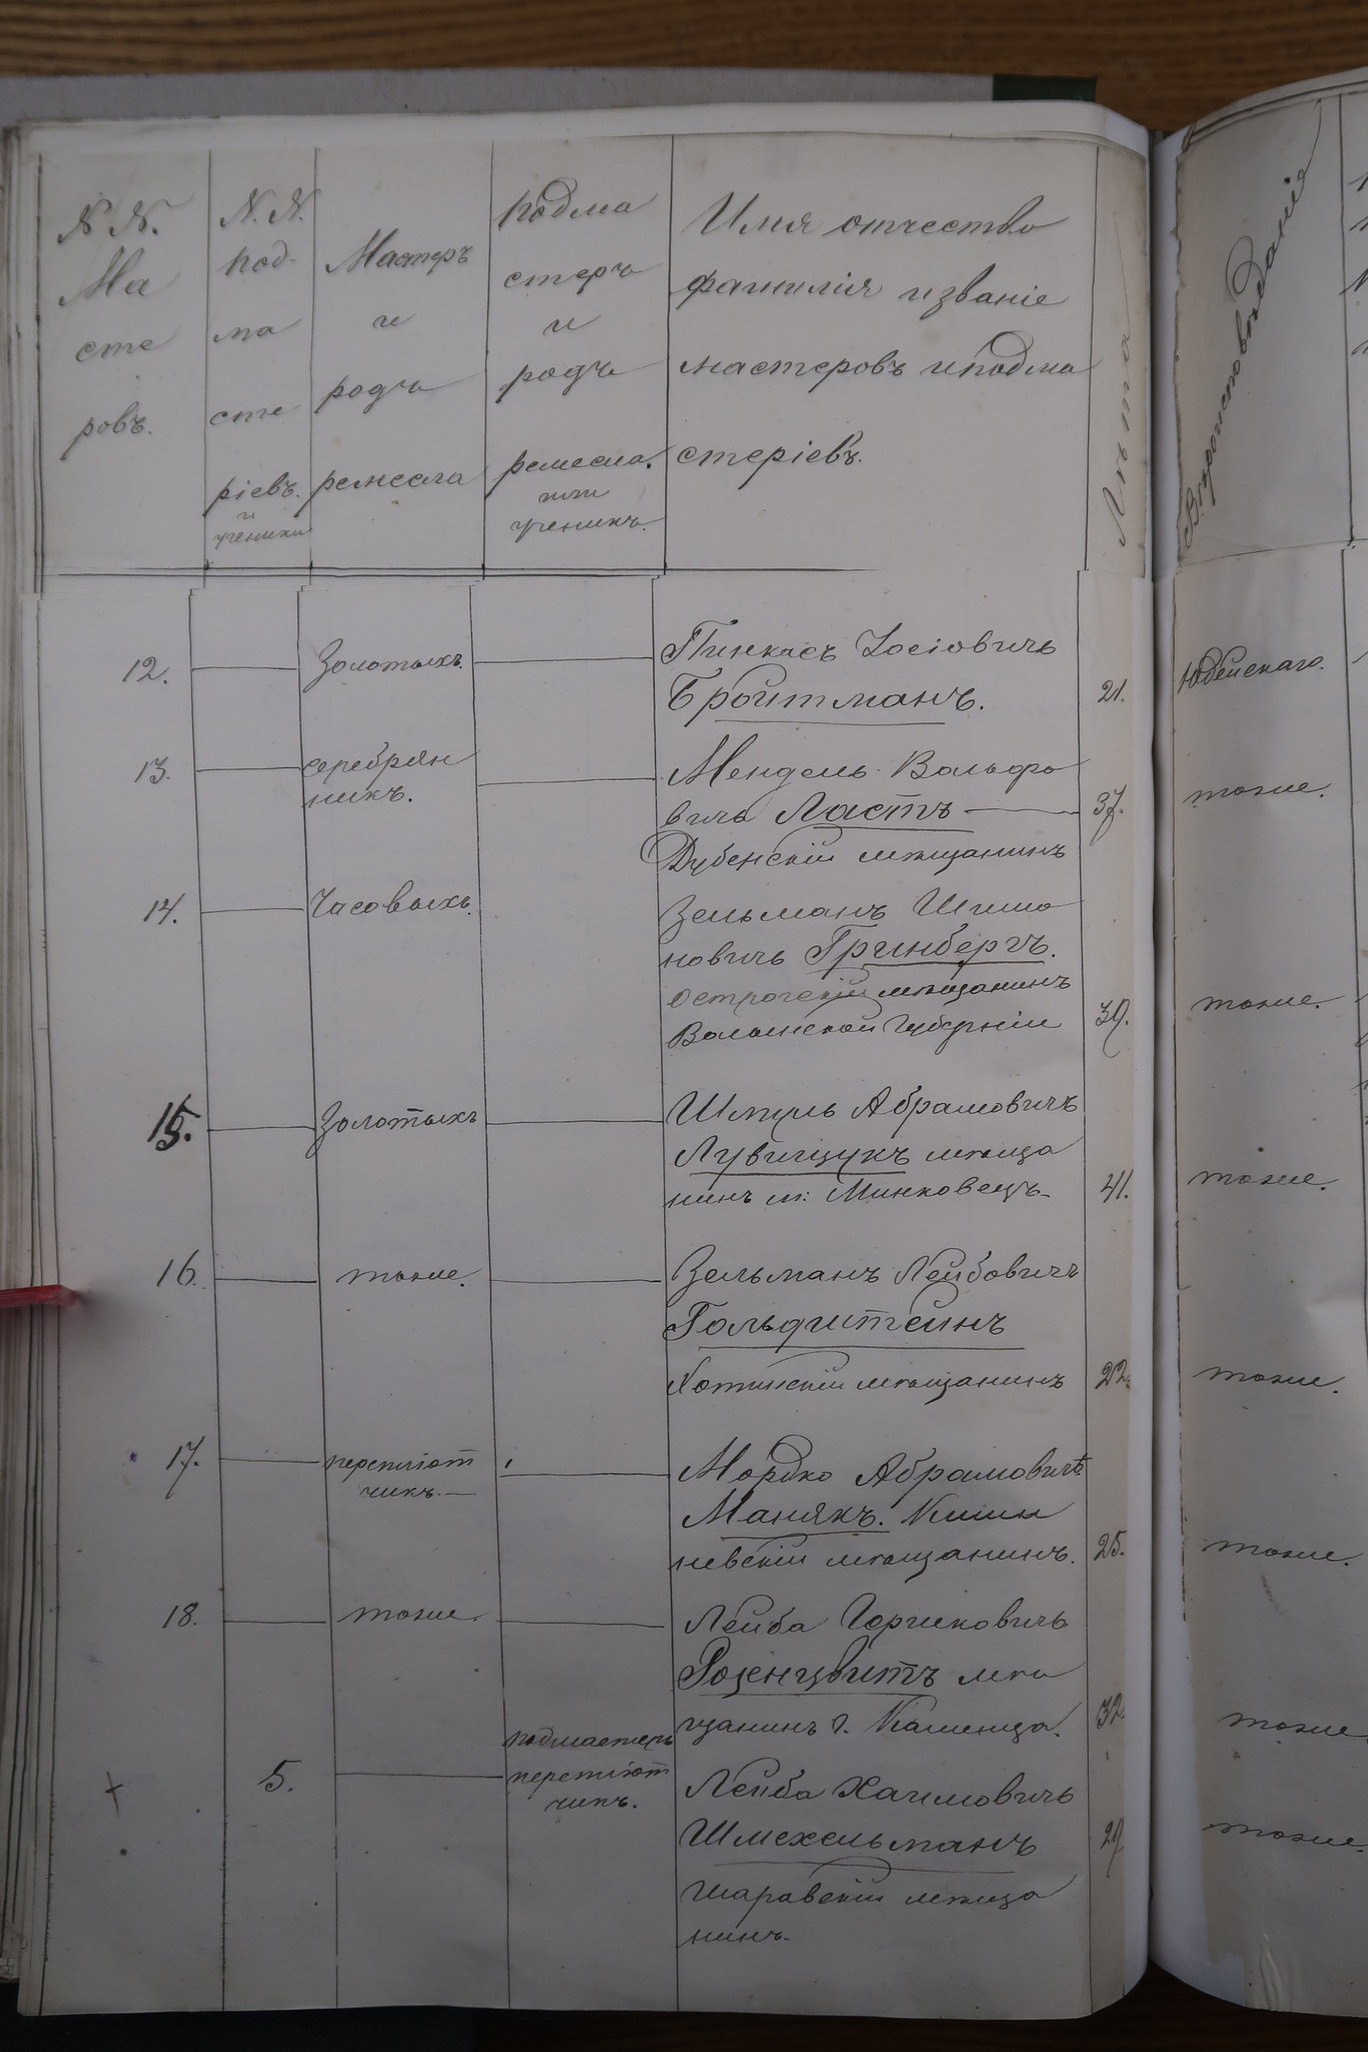 N. N. Ма сте ровъ.
N. N. под- ма сте ріевъ. и ученики
Мастеръ и родъ ремесла
Подма стеръ и родъ ремесла. или ученикъ.
Имя отчество
фамилія и званіе
мастеровъ и подма
стеріевъ.
Лѣта
Вѣроисповѣданіе
12. Золотыхъ. Пинкасъ Іосіовичъ
Бройтманъ. 21. Юдейскаго.
13. серебрян Мендель Вольфо
никъ. вичъ Ластъ 37. тоже.
Дубенскій мѣщанинъ
14. Часовыхъ. Зельманъ Шимо
новичъ Гринбергъ.
Острогскій мѣщанинъ
Волынской Губерніи 39. тоже.
15. Золотыхъ Шмуль Абрамовичъ
Лувищукъ мѣща
нинъ м: Минковецъ 41. тоже.
16. тоже. Зельманъ Лейбовичъ
Гольдштейнъ
Хотинскій мѣщанинъ 22. тоже.
17. переплiот Мордко Абрамовичъ
чикъ. Манякъ. Киши
невскій мѣщанинъ. 25. тоже.
18. тоже. Лейба Гершковичъ
Розенцвитъ мѣ
щанинъ г. Каменца. 32. тоже
5. подмастеръ переплiот чикъ. Лейба Хаимовичъ
Шмехельманъ 29 тоже.
Шаравскій мѣща
нинъ.